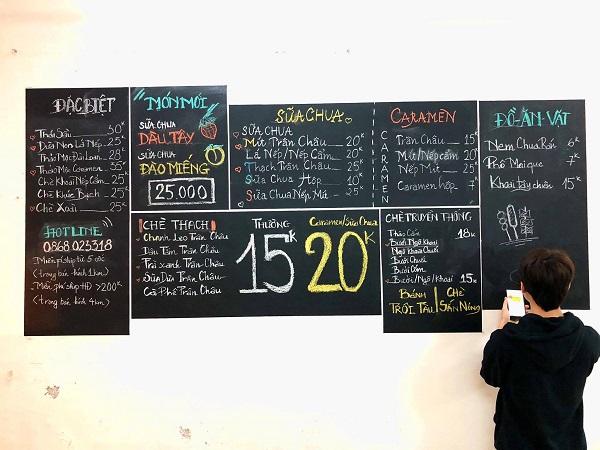 ĐẶC BIỆT
Thái Sầu 30K
Dừa Non Lá Nếp 25K
Thảo Mộc Đài Loan 28K
Thảo Mộc Caramen 35K
Chè Khoai Nếp Cẩm 25K
Chè Khúc Bạch 25K
Chè Xoài 25K
HOTLINE
0868 025318
Miễn phí ship từ 5 cốc
(trong bán kính 1km)
Miễn phí ship HĐ >200K
(trong bán kính 4km)
MÓN MỚI
SỮA CHUA
DÂU TÂY
SỮA CHUA
ĐÀO MIẾNG
25.000
SỮA CHUA
SỮA CHUA
Mít Trân Châu 20K
Lá Nếp/Nếp Cẩm 20K
Thạch Trân Châu 20K
Sữa Chua Hộp 10K
Sữa Chua Nếp Mít 25K
CARAMEN
CARAMEN
Trân Châu 15K
Mít/Nếp cẩm 20K
Nếp Mít 25K
Caramen hộp 7K
ĐỒ-ĂN-VẶT
Nem Chua Rán 6K
Phô Mai que 7K
Khoai tây chiên 15K
CHÈ THẠCH
Chanh Leo Trân Châu
Dâu Tằm Trân Châu
Trà xanh Trân Châu
Sữa Dừa Trân Châu
Cà Phê Trân Châu
THƯỜNG
15K
Caramen/Sữa Chua
20K
CHÈ TRUYỀN THỐNG
Thập Cẩm 18K
Bưởi Ngô Khoai
Ngô Khoai Chuối
Bưởi Chuối
Bưởi Cốm
Bưởi/Ngô/Khoai 15K
BÁNH TRÔI TÀU
CHÈ SẮN NÓNG